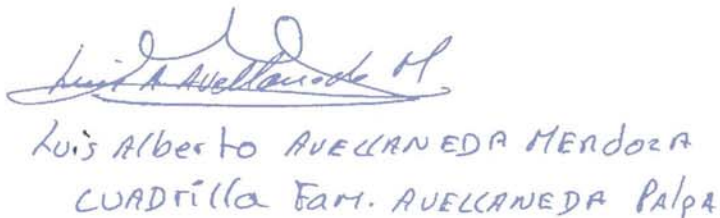 Luis A Avellaneda M.
Luis Alberto AVELLANEDA MENDOZA
CUADrilla Fam. AVELLANEDA PAlpA